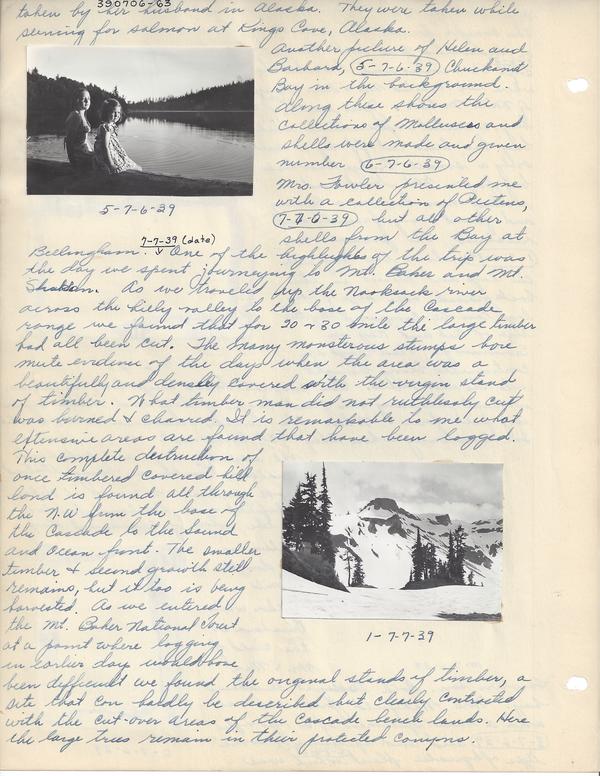 390706-63
taken by her husband in Alaska. They were taken while
seining for salmon at Kings Cove, Alaska.
Another picture of Helen and
Barbara, 5-7-6-39 Chuckanut
Bay in the background.
Along these shores the
collections of Molluscs and
shells were made and given
number 6-7-6-39
Mrs. Fowler presented me
with a collection of Pectens,
7-7-6-39 but all other
shells from the Bay at
5-7-6-39
7-7-39 (date)
Bellingham. One of the highlights of the trip was
the day we spent journeying to Mt. Baker and Mt.
Shuksan. As we traveled up the Nooksack river
across the hilly valley to the base of the Cascade
range we found that for 20 & 30 mile the large timber
had all been cut. The many monsterous stumps bore
mute evidence of the days when the area was a
beautifully and densely covered with the virgin stand
of timber. What timber man did not ruthlessly cut
was burned & charred. It is remarkable to me what
extensive areas are found that have been logged.
This complete destruction of
once timbered covered hill
land is found all through
the N.W from the base of
the Cascade to the Sound
and Ocean front. The smaller
timber & second growth still
remains, but it too is being
harvested. As we entered
the Mt. Baker National Forest
at a point where logging
in earlier day would have
1-7-7-39
been difficult we found the original stands of timber, a
site that can hardly be described but clearly contrasted
with the cut-over areas of the Cascade bench lands. Here
the large trees remain in their protected canyons.